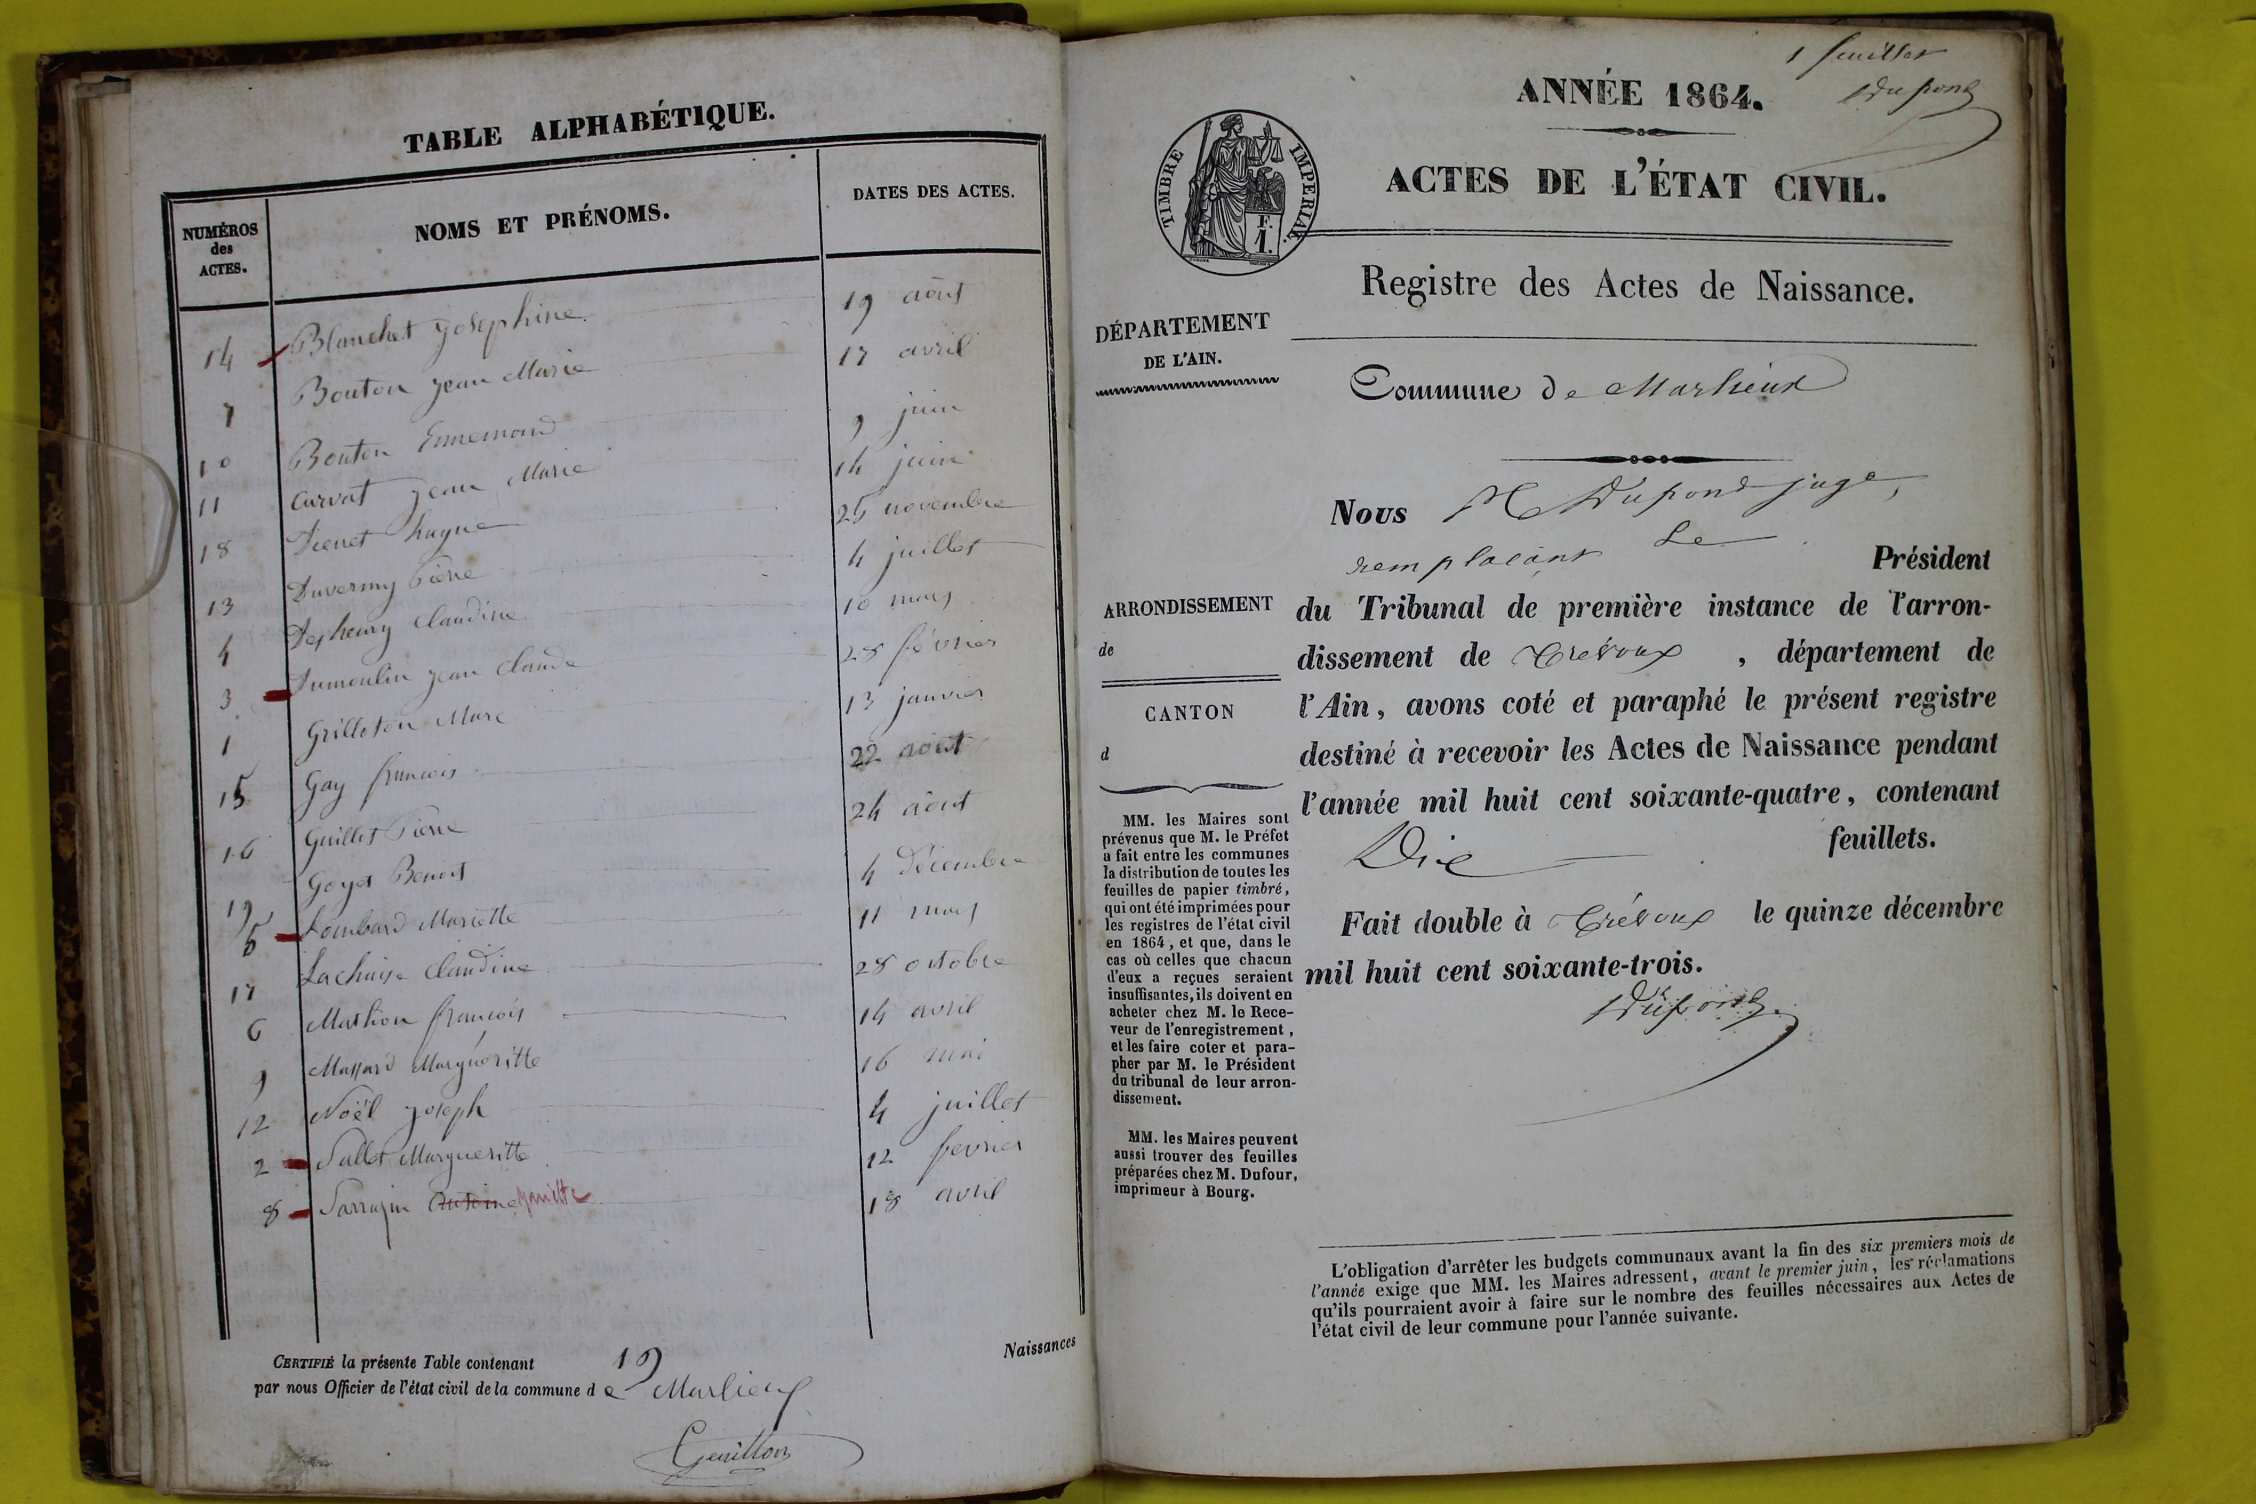 TABLE ALPHABÉTIQUE.
NUMÉROS des ACTES. NOMS ET PRÉNOMS. DATES DES ACTES.
14 Blanchet Josephine 19 août
7 Bouton Jean Marie 17 avril
10 Bouton Ennemond 9 juin
11 Curvat Jean Marie 14 juin
18 25 novembre
13 Duvernay Pierre 4 juillet
4 Claudine 10 mars
3 Dumoulin Jean Claude 28 février
1 Grilleton Marc 13 janvier
15 Gay françois 22 août
16 Guillet Pierre 24 août
19 Goyet Benoit 4 Décembre
5 Lombard Mariette 11 mars
17 Lachaise Claudine 28 octobre
6 françois 14 avril
9 Massard Marguéritte 16 mai
12 Noël Joseph 4 juillet
2 Sallet Margueritte 12 fevrier
8 Sarrazin Antoine Mariette 18 avril
CERTIFIÉ la présente Table contenant 19 Naissances
par nous Officier de l'état civil de la commune d e Marlieux
1 feuillet
Dupond
ANNÉE 1864.
ACTES DE L'ÉTAT CIVIL.
TIMBRE IMPERIAL.
F.
1.
Registre des Actes de Naissance.
DÉPARTEMENT
DE L'AIN.
Commune de Marlieux
Nous Dupond juge,
remplaçant Le Président
du Tribunal de première instance de l'arron-
dissement de Trévoux, département de
l'Ain, avons coté et paraphé le présent registre
destiné à recevoir les Actes de Naissance pendant
l'année mil huit cent soixante-quatre, contenant
Dix feuillets.
Fait double à Trévoux le quinze décembre
mil huit cent soixante-trois.
Dupond
ARRONDISSEMENT
de
CANTON
d
MM. les Maires sont
prévenus que M. le Préfet
a fait entre les communes
la distribution de toutes les
feuilles de papier timbré,
qui ont été imprimées pour
les registres de l'état civil
en 1864, et que, dans le
cas où celles que chacun
d'eux a reçues seraient
insuffisantes, ils doivent en
acheter chez M. le Rece-
veur de l'enregistrement,
et les faire coter et para-
pher par M. le Président
du tribunal de leur arron-
dissement.
MM. les Maires peuvent
aussi trouver des feuilles
préparées chez M. Dufour,
imprimeur à Bourg.
L'obligation d'arrêter les budgets communaux avant la fin des six premiers mois de
l'année exige que MM. les Maires adressent, avant le premier juin, les réclamations
qu'ils pourraient avoir à faire sur le nombre des feuilles nécessaires aux Actes de
l'état civil de leur commune pour l'année suivante.